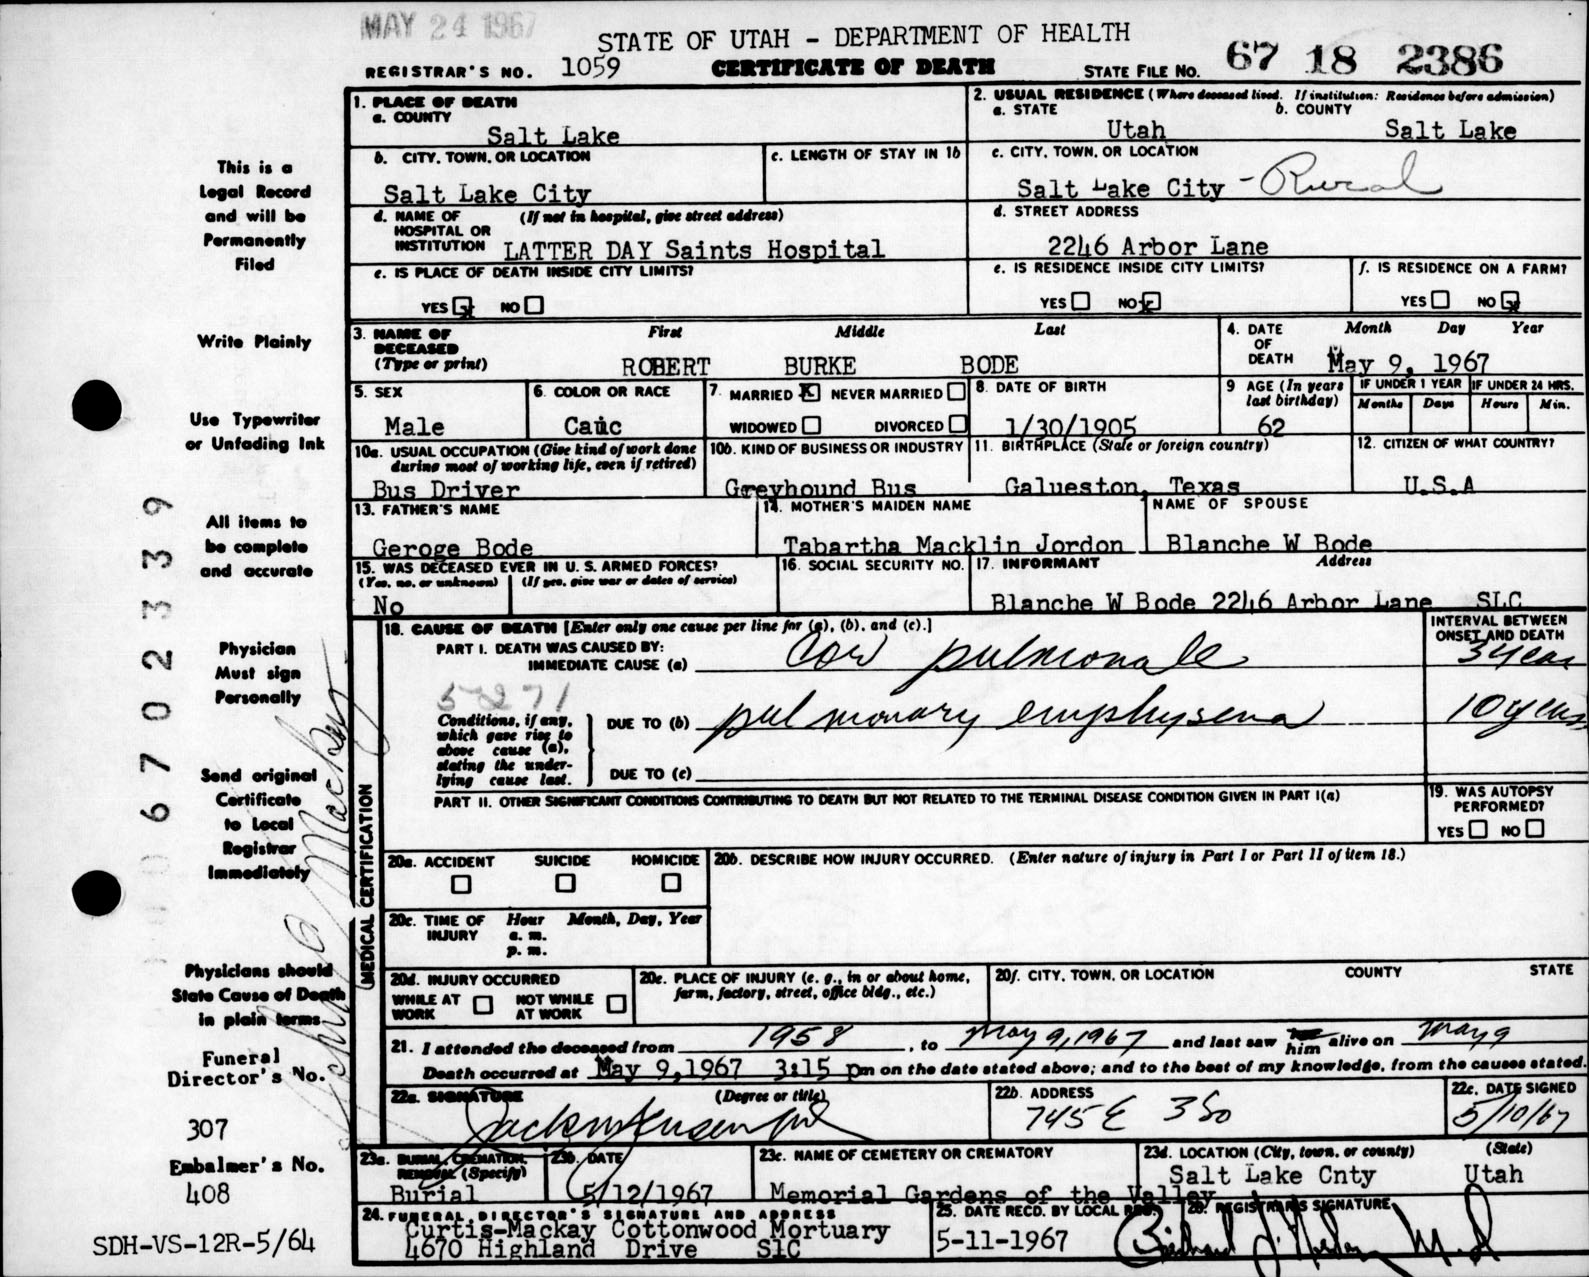 MAY 24 1967
STATE OF UTAH - DEPARTMENT OF HEALTH
REGISTRAR'S NO. 1059 CERTIFICATE OF DEATH STATE FILE NO. 67 18 2386
This is a
Legal Record
and will be
Permanently
Filed
Write Plainly
Use Typewriter
or Unfading Ink
All items to
be complete
and accurate
Physician
Must sign
Personally
Send original
Certificate
to Local
Registrar
Immediately
Physicians should
State Cause of Death
in plain terms
Funeral
Director's No.
307
Embalmer's No.
408
SDH-VS-12R-5/64
6702339
1. PLACE OF DEATH
a. COUNTY
Salt Lake
2. USUAL RESIDENCE (Where deceased lived. If institution: Residence before admission)
a. STATE b. COUNTY
Utah Salt Lake
b. CITY, TOWN, OR LOCATION c. LENGTH OF STAY IN 1b
Salt Lake City
c. CITY, TOWN, OR LOCATION
Salt Lake City - Rural
d. NAME OF HOSPITAL OR INSTITUTION (If not in hospital, give street address)
LATTER DAY Saints Hospital
d. STREET ADDRESS
2246 Arbor Lane
e. IS PLACE OF DEATH INSIDE CITY LIMITS?
YES x NO
e. IS RESIDENCE INSIDE CITY LIMITS?
YES NO x
f. IS RESIDENCE ON A FARM?
YES NO x
3. NAME OF DECEASED (Type or print) First Middle Last
ROBERT BURKE BODE
4. DATE OF DEATH Month Day Year
May 9, 1967
5. SEX
Male
6. COLOR OR RACE
Cauc
7. MARRIED X NEVER MARRIED
WIDOWED DIVORCED
8. DATE OF BIRTH
1/30/1905
9 AGE (In years last birthday)
62
IF UNDER 1 YEAR IF UNDER 24 HRS.
Months Days Hours Min.
10a. USUAL OCCUPATION (Give kind of work done during most of working life, even if retired)
Bus Driver
10b. KIND OF BUSINESS OR INDUSTRY
Greyhound Bus
11. BIRTHPLACE (State or foreign country)
Galueston, Texas
12. CITIZEN OF WHAT COUNTRY?
U.S.A
13. FATHER'S NAME
Geroge Bode
14. MOTHER'S MAIDEN NAME
Tabartha Macklin Jordon
NAME OF SPOUSE
Blanche W Bode
15. WAS DECEASED EVER IN U. S. ARMED FORCES?
(Yes, no, or unknown) (If yes, give war or dates of service)
No
16. SOCIAL SECURITY NO.
17. INFORMANT Address
Blanche W Bode 2246 Arbor Lane SLC
MEDICAL CERTIFICATION
18. CAUSE OF DEATH [Enter only one cause per line for (a), (b), and (c).]
INTERVAL BETWEEN ONSET AND DEATH
PART I. DEATH WAS CAUSED BY:
IMMEDIATE CAUSE (a) Cor pulmonale 3 years
5271
Conditions, if any, which gave rise to above cause (a), stating the underlying cause last.
DUE TO (b) pulmonary emphysema 10 years
DUE TO (c)
PART II. OTHER SIGNIFICANT CONDITIONS CONTRIBUTING TO DEATH BUT NOT RELATED TO THE TERMINAL DISEASE CONDITION GIVEN IN PART I(a)
19. WAS AUTOPSY PERFORMED?
YES NO
20a. ACCIDENT SUICIDE HOMICIDE
20b. DESCRIBE HOW INJURY OCCURRED. (Enter nature of injury in Part I or Part II of item 18.)
20c. TIME OF INJURY Hour Month, Day, Year
a. m.
p. m.
20d. INJURY OCCURRED
WHILE AT WORK NOT WHILE AT WORK
20e. PLACE OF INJURY (e. g., in or about home, farm, factory, street, office bldg., etc.)
20f. CITY, TOWN, OR LOCATION COUNTY STATE
21. I attended the deceased from 1958, to May 9, 1967 and last saw him alive on May 9
Death occurred at May 9,1967 3:15 pm on the date stated above; and to the best of my knowledge, from the causes stated.
22a. SIGNATURE (Degree or title)
22b. ADDRESS
745 E 3 So
22c. DATE SIGNED
5/10/67
23a. BURIAL, CREMATION, REMOVAL (Specify)
Burial
23b. DATE
5/12/1967
23c. NAME OF CEMETERY OR CREMATORY
Memorial Gardens of the Valley
23d. LOCATION (City, town, or county) (State)
Salt Lake Cnty Utah
24. FUNERAL DIRECTOR'S SIGNATURE AND ADDRESS
Curtis-Mackay Cottonwood Mortuary
4670 Highland Drive SLC
25. DATE RECD. BY LOCAL REG.
5-11-1967
26. REGISTRAR'S SIGNATURE